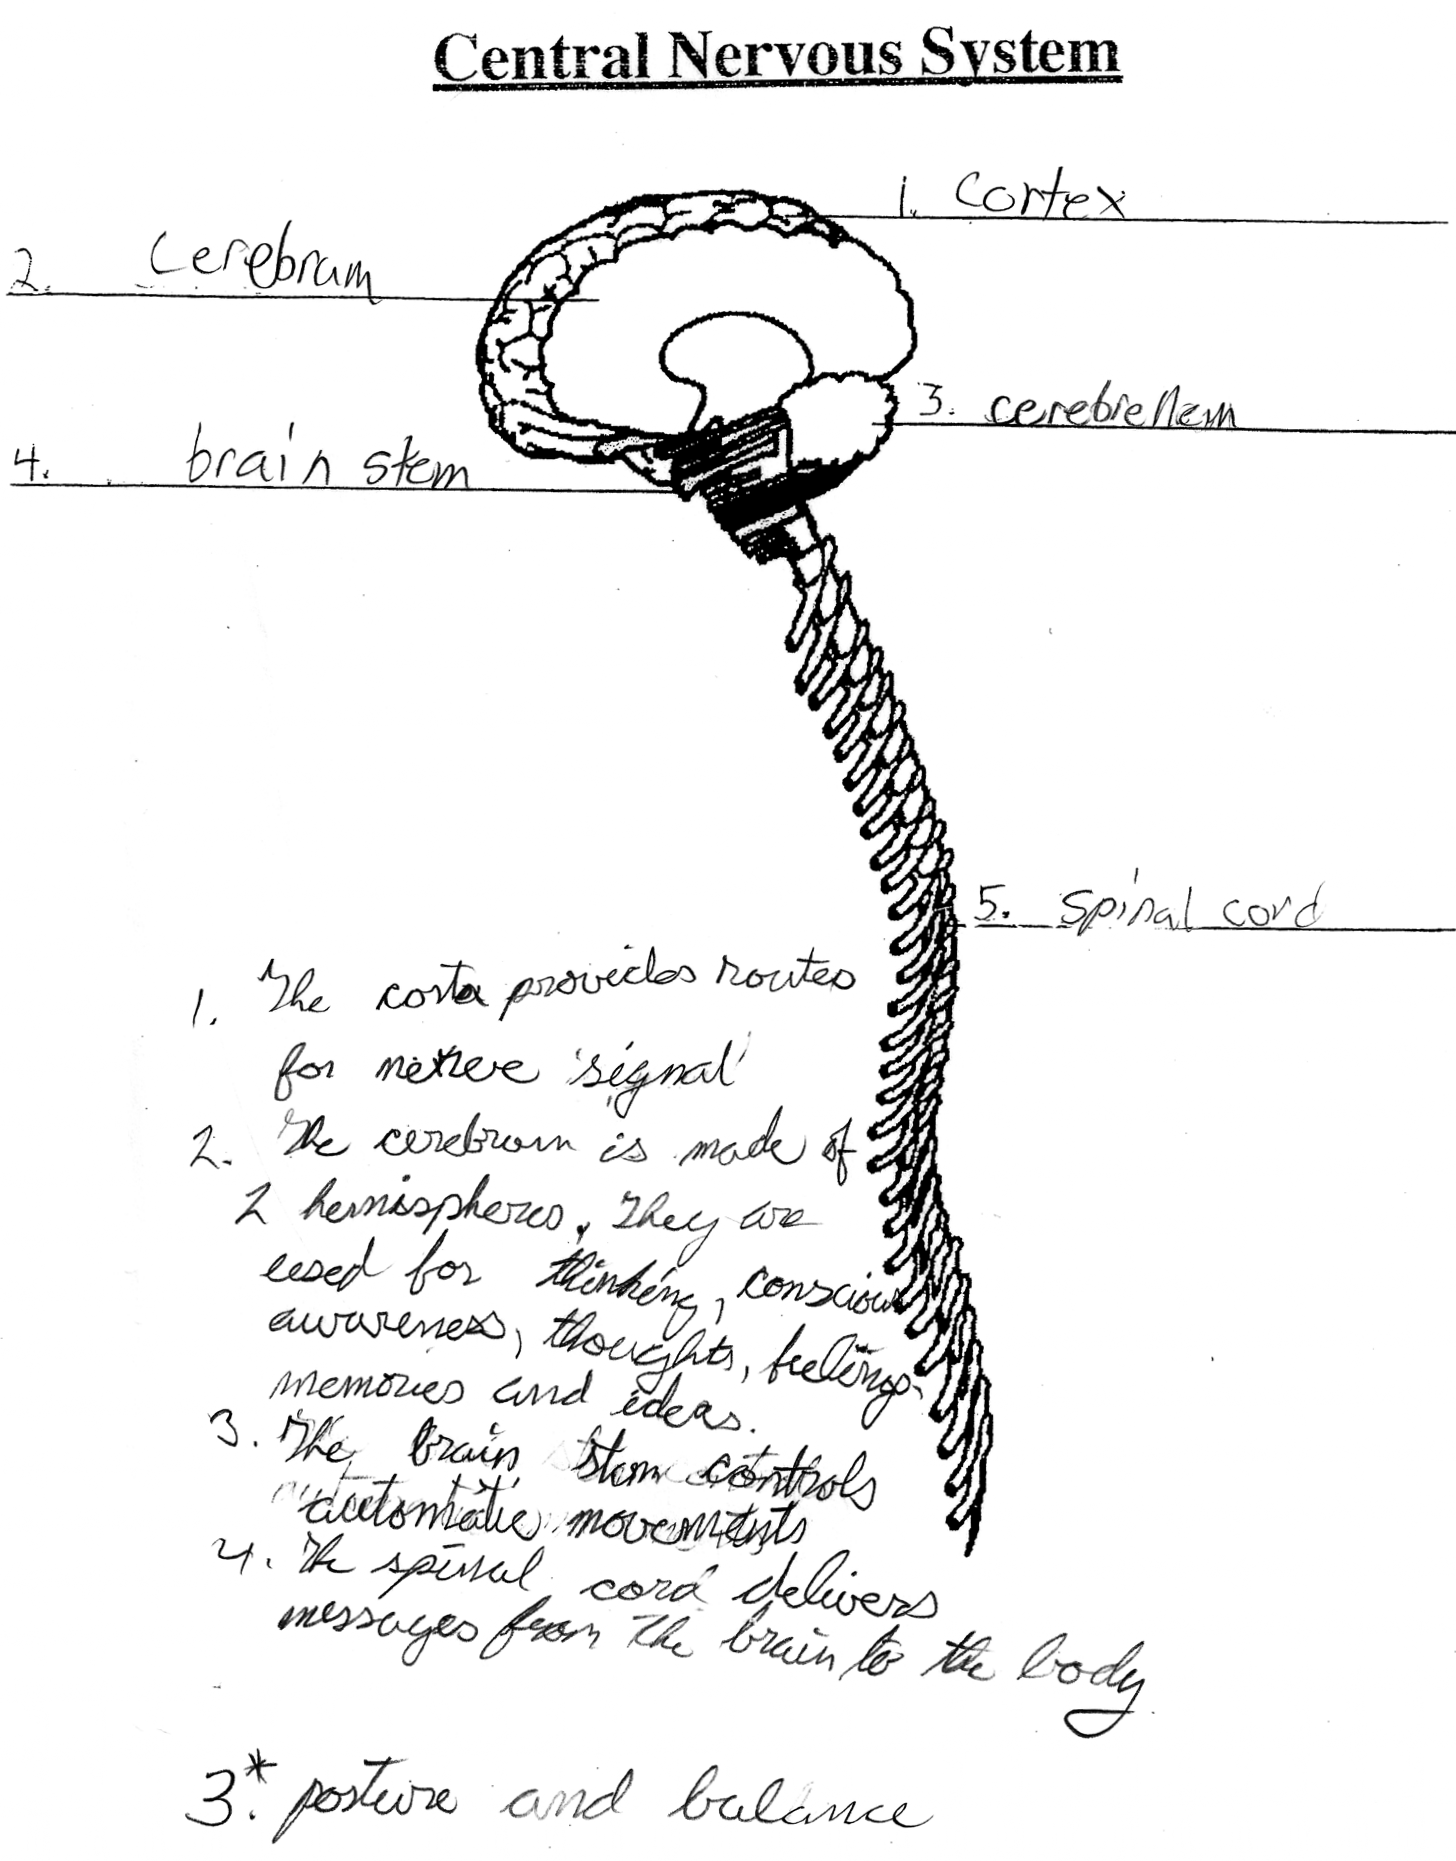 Central Nervous System
1. Cortex
2. Cerebram
3. cerebrellem
4. brain stem
5. spinal cord
1. The corta provides routes
for nerve signal
2. The cerebrum is made of
2 hemispheres. They are
used for thinking, conscious
awareness, thoughts, feelings
memories and ideas.
3. The brain stem controls
automatic movements
4. The spinal cord delivers
messages from the brain to the body
3.* posture and balance